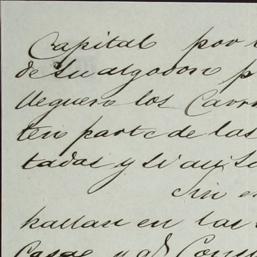 Capital por
de su algodon p
lleguen los Carr
ten parte de las
tadas y si
Sin e
hallan en las
Casas y